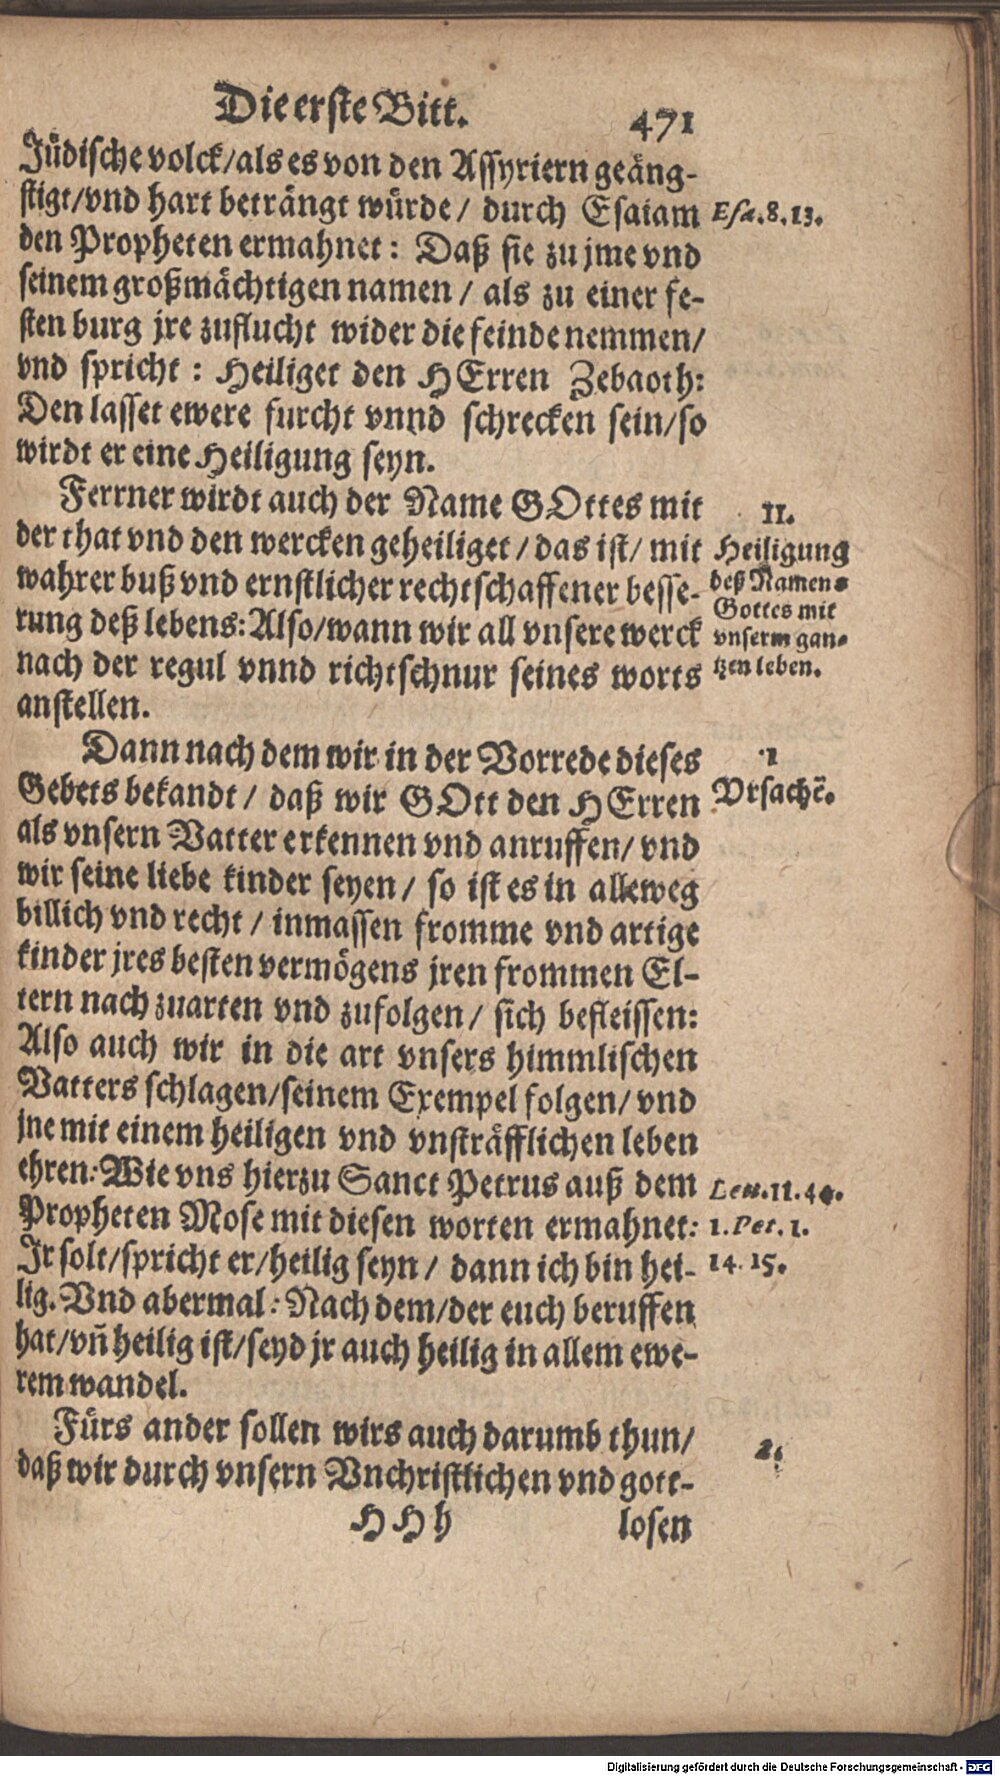 Die erste Bitt. 471
Jüdische volck/als es von den Assyriern geäng-
stigt/vnd hart beträngt würde/ durch Esaiam
Esa.8.13.
den Propheten ermahnet: Daß sie zu jme vnd
seinem großmächtigen namen/ als zu einer fe-
sten burg jre zuflucht wider die feinde nemmen/
vnd spricht: Heiliget den HErren Zebaoth:
Den lasset ewere furcht vnnd schrecken sein/so
wirdt er eine Heiligung seyn.
Ferrner wirdt auch der Name GOttes mit
der that vnd den wercken geheiliget/das ist/ mit
wahrer buß vnd ernstlicher rechtschaffener besse-
rung deß lebens: Also/wann wir all vnsere werck
nach der regul vnnd richtschnur seines worts
anstellen.
II.
Heiligung
deß Namens
Gottes mit
vnserm gan-
tzen leben.
Dann nach dem wir in der Vorrede dieses
Gebets bekandt/ daß wir GOtt den HErren
als vnsern Vatter erkennen vnd anruffen/ vnd
wir seine liebe kinder seyen/ so ist es in alleweg
billich vnd recht/ inmassen fromme vnd artige
kinder jres besten vermögens jren frommen El-
tern nach zuarten vnd zufolgen/ sich befleissen:
Also auch wir in die art vnsers himmlischen
Vatters schlagen/seinem Exempel folgen/ vnd
jne mit einem heiligen vnd vnsträfflichen leben
ehren: Wie vns hierzu Sanct Petrus auß dem
Propheten Mose mit diesen worten ermahnet:
Jr solt/spricht er/heilig seyn/ dann ich bin hei-
lig. Vnd abermal: Nach dem/der euch beruffen
hat/vn̄ heilig ist/seyd jr auch heilig in allem ewe-
rem wandel.
1
Vrsachē.
Leu.11.44.
1.Pet.1.
14.15.
Fürs ander sollen wirs auch darumb thun/
daß wir durch vnsern Vnchristlichen vnd gott-
2.
HHh losen
Digitalisierung gefördert durch die Deutsche Forschungsgemeinschaft - DFG